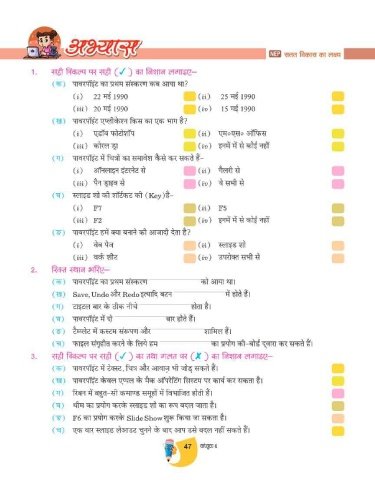 अभ्यास
NEP सतत विकास का लक्ष्य
1. सही विकल्प पर सही (✓) का निशान लगाइए–
(क) पावरपॉइंट का प्रथम संस्करण कब आया था?
(i) 22 मई 1990 (ii) 25 मई 1990
(iii) 20 मई 1990 (iv) 15 मई 1990
(ख) पावरपॉइंट एप्लीकेशन किस का एक भाग है?
(i) एडॉब फोटोशॉप (ii) एम०एस० ऑफिस
(iii) कोरल ड्रा (iv) इनमें में से कोई नहीं
(ग) पावरपॉइंट में चित्रों का समावेश कैसे कर सकते हैं–
(i) ऑनलाइन इंटरनेट से (ii) गैलरी से
(iii) पैन ड्राइव से (iv) ये सभी से
(घ) स्लाइड शो की शॉर्टकट की (Key) है–
(i) F7 (ii) F5
(iii) F2 (iv) इनमें में से कोई नहीं
(ङ) पावरपॉइंट हमें क्या बनाने की आजादी देता है?
(i) वेब पेज (ii) स्लाइड शो
(iii) वर्क शीट (iv) उपरोक्त सभी से
2. रिक्त स्थान भरिए–
(क) पावरपॉइंट का प्रथम संस्करण को आया था।
(ख) Save, Undo और Redo इत्यादि बटन में होते हैं।
(ग) टाइटल बार के ठीक नीचे होता है।
(घ) पावरपॉइंट में दो बार होते हैं।
(ङ) टैम्प्लेट में कस्टम संकुपण और शामिल हैं।
(च) फाइल संगृहीत करने के लिए हम का प्रयोग की-बोर्ड द्वारा कर सकते हैं।
3. सही विकल्प पर सही (✓) का तथा गलत पर (✗) का निशान लगाइए–
(क) पावरपॉइंट में टेक्स्ट, चित्र और आवाज़ भी जोड़ सकते हैं।
(ख) पावरपॉइंट केवल एप्पल के मैक ऑपरेटिंग सिस्टम पर कार्य कर सकता है।
(ग) रिबन में बहुत-सी कमाण्ड समूहों में विभाजित होती हैं।
(घ) थीम का प्रयोग करके स्लाइड शो का रूप बदल जाता है।
(ङ) F6 का प्रयोग करके Slide Show शुरू किया जा सकता है।
(च) एक बार स्लाइड लेआउट चुनने के बाद आप उसे बदल नहीं सकते हैं।
47
कंप्यूटर-6